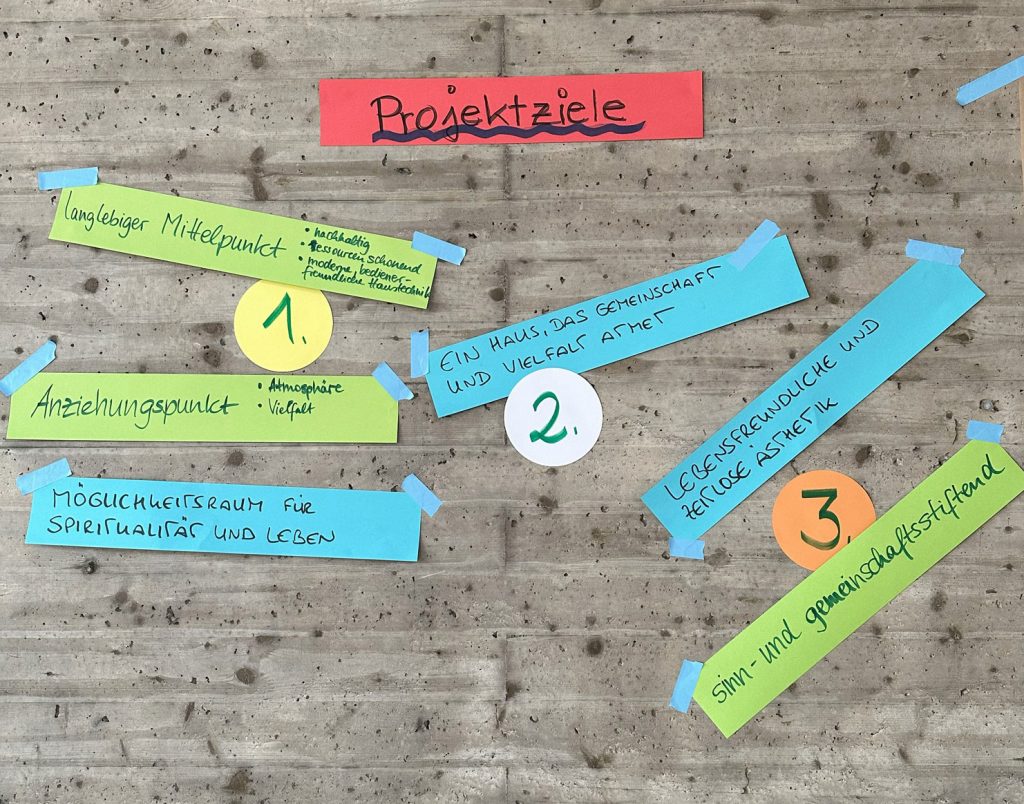 Projektziele
langlebiger Mittelpunkt
• nachhaltig
• Ressourcenschonend
• moderne, bediener-
freundliche Haustechnik
1.
Anziehungspunkt
• Atmosphäre
• Vielfalt
MÖGLICHKEITSRAUM FÜR
SPIRITUALITÄT UND LEBEN
EIN HAUS, DAS GEMEINSCHAFT
UND VIELFALT ATMET
2.
LEBENSFREUNDLICHE UND
ZEITLOSE ÄSTHETIK
3.
sinn- und gemeinschaftsstiftend